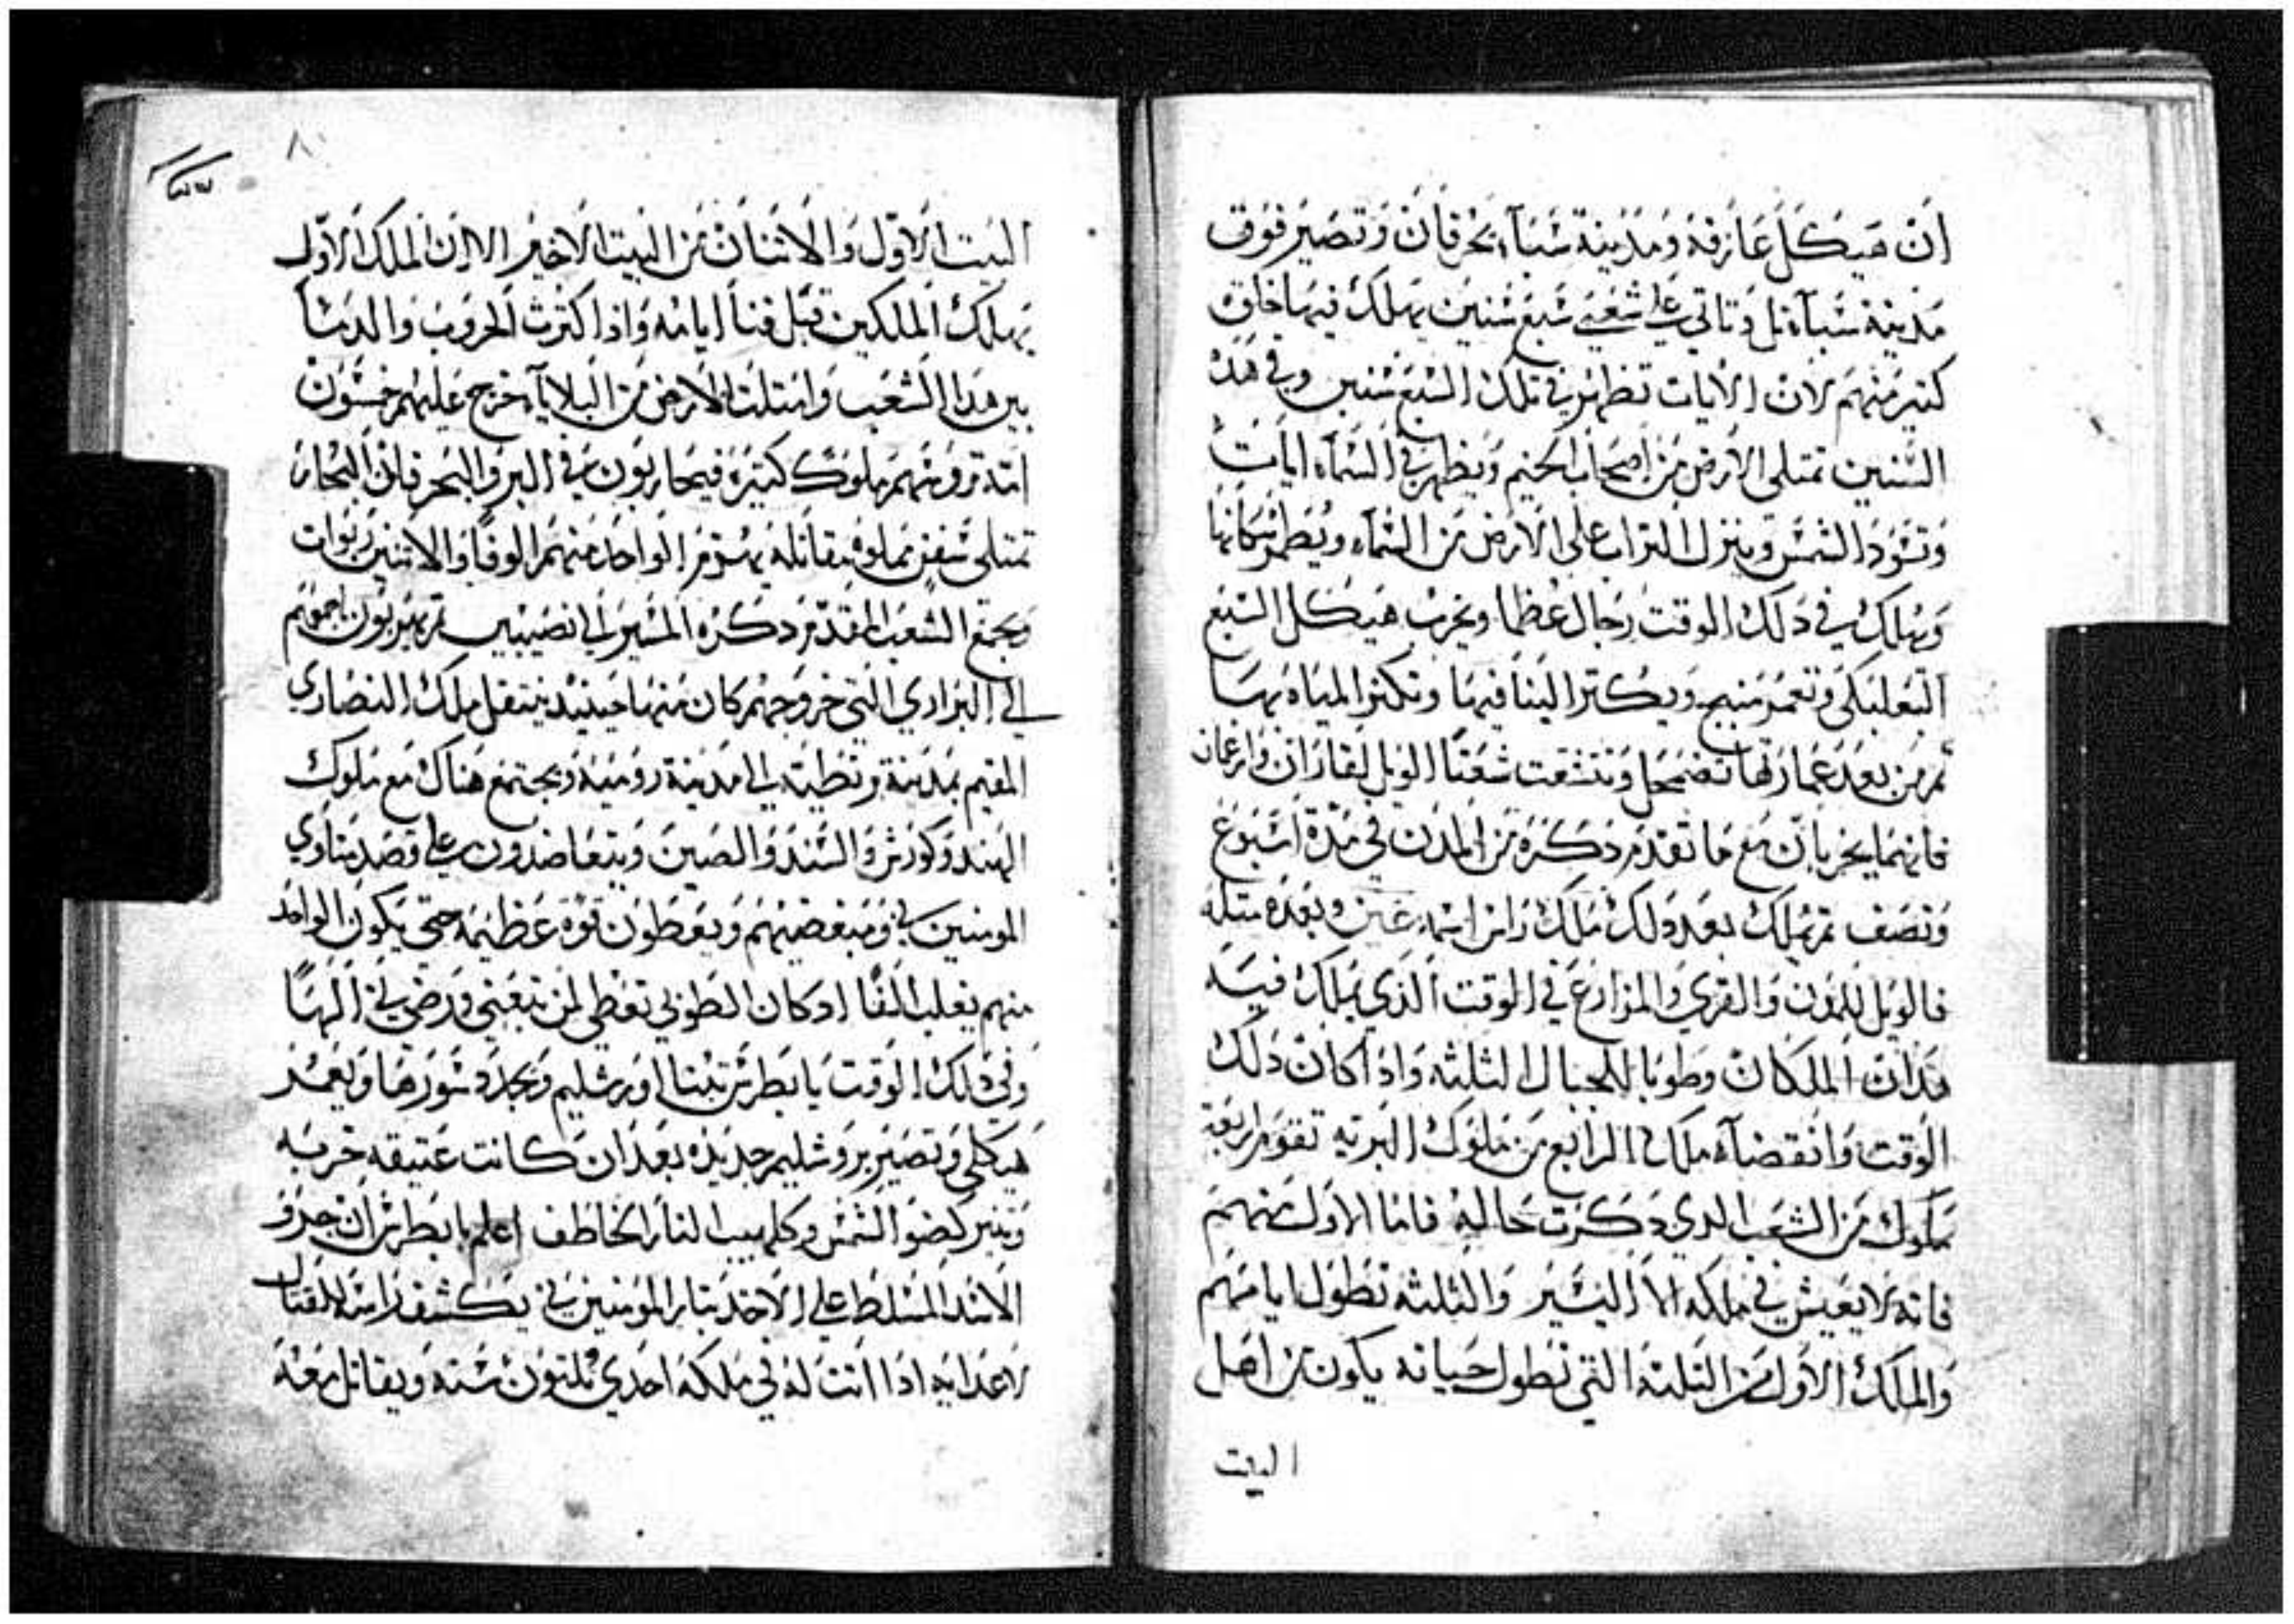 ان هيكل عازفه ومدينة شبآ يخرقان وتصير فوق
مدينة شبآة تل وتاتي على شعبي سبع سنين يهلك فيها خلق
كتير منهم لان الايات تظهر في تلك السبع سنين وفي هذه
السنين تمتلي الارض من اصحاب الجيم ويظهر في السمآء ايات
وتسود الشمس وينزل التراب على الارض من السماء ويطمر سكانها
ويهلك في دلك الوقت رجال عظما ويخرب هيكل السبع
البعلبكي وتعمر منبج ويكتر البنا فيها وتكثر المياه بها
ثم من بعد عمارتها تضمحل وتتشقت شعتا الويل لقاران وارغان
فانهما يخربان مع ما تقدم دكره من المدن في مدة اسبوع
ونصف تم يملك بعد دلك ملك راس اسمه عين وبعده متله
فالويل للمدن والقري والمزارع في الوقت الذي يملك فيه
هدان الملكان وطوبا للجبال الثلثه واذا كان دلك
الوقت وانقضآء ملك الرابع من ملوك البريه تقوم اربعة
ملوك من الشعب الدي دكرت حاليه فاما الاول منهم
فانه لا يعيش في ملكه الا اليسير والثلثه تطول ايامهم
والملك الاول من التلته التي تطول حياته يكون من اهل
البيت
٨٠
البيت الاول والاثنان من البيت الاخير الا ان الملك الاول
يهلك الملكين قبل فنا ايامه واذا كترت الحروب والدما
بين هدا الشعب وامتلت الارض من البلايآ خرج عليهم خمسون
امة ومنهم ملوك كتيره فيحاربون في البر والبحر فان البحار
تمتلي سفن مملوة مقاتله يهزم الواحد منهم الوفا والاتنين ربوات
ويجتمع الشعب المقدم دكره المسير الي نصيبين تم يهربون باجمعهم
الي البراري التي خروجهم كان منها حينيد ينتقل ملك النصاري
المقيم بمدينة الي مدينة روميه ويجتمع هناك مع ملوك
الهند وكورش والسند والصين ويتعاضدون على قصد مناوي
المومنين بي ومبغضيهم ويعطون قوة عظيمه حتى يكون الواحد
منهم يغلب الفا اد كان الطوبي تعطي لمن تبعني ورضي بي الها
وفي دلك الوقت يا بطرس تبنا اورشليم ويجدد سورها ويعمر
هيكلي وتصير يروشليم جديده بعد ان كانت عتيقه خربه
وتنير كضو الشمس وكلهيب النار الخاطف اعلم يا بطرس ان جرو
الاسد المسلط على الاخد بتار المومنين بي يكشف راسه للقتال
لاعدايه اذا اتت له في ملكه احدي وثلثون سنه ويقاتل معه